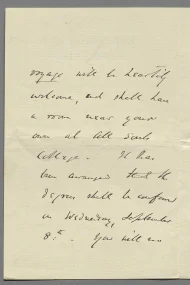 voyage will be heartily
welcome, and shall have
a room near your
own at All Souls
College. It has
been arranged that the
degrees shall be conferred
on Wednesday, September
8th. You will no